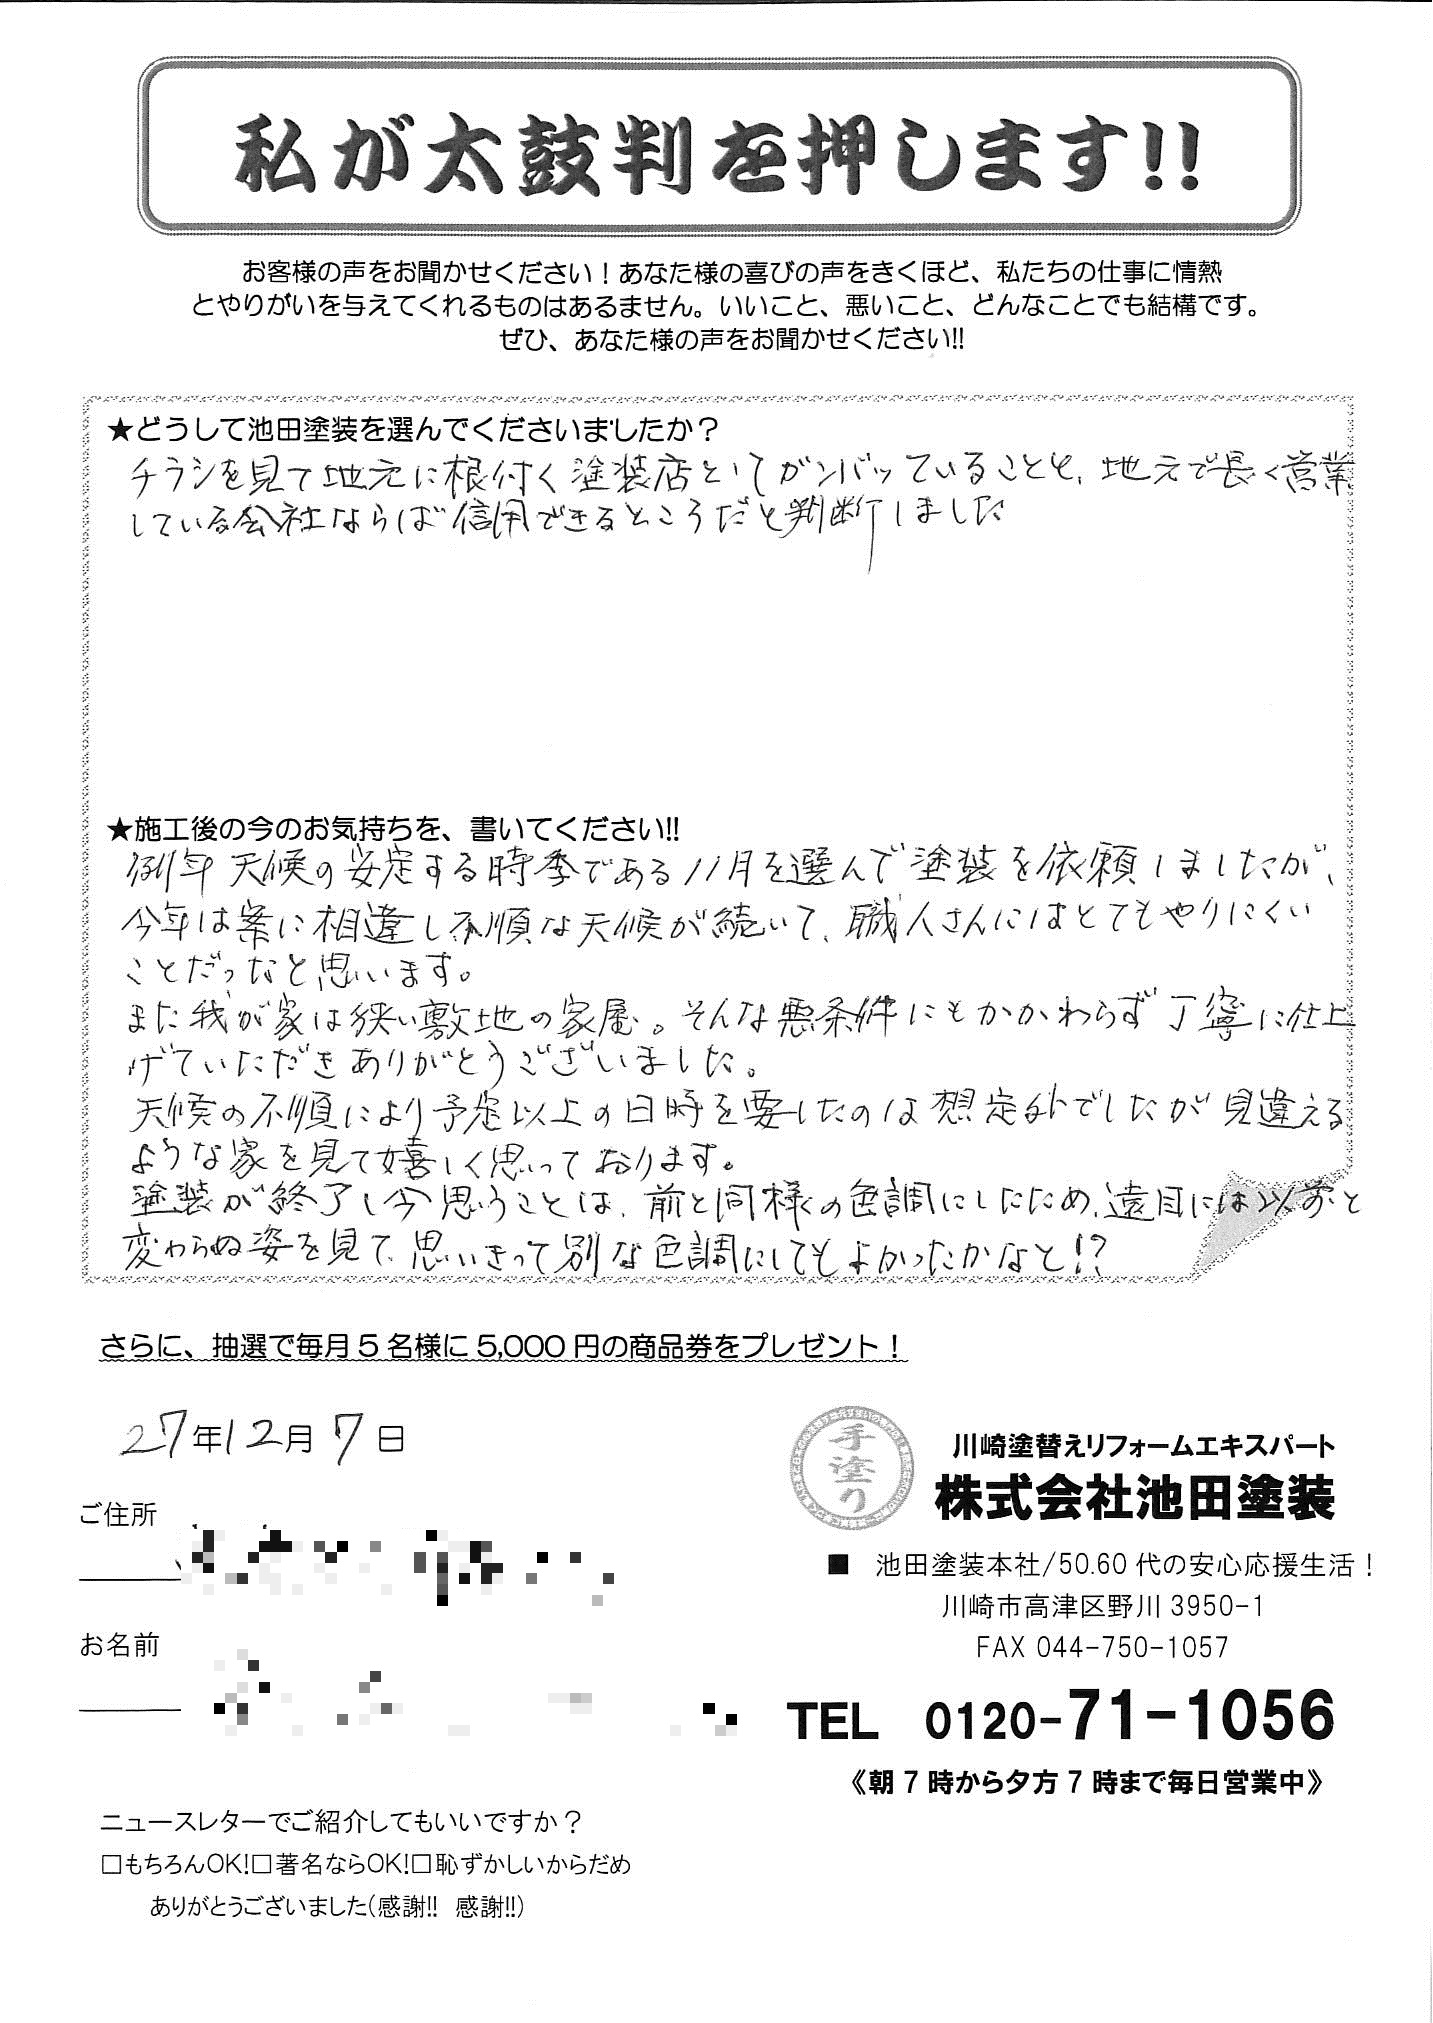 私が太鼓判を押します!!
お客様の声をお聞かせください！あなた様の喜びの声をきくほど、私たちの仕事に情熱
とやりがいを与えてくれるものはあるません。いいこと、悪いこと、どんなことでも結構です。
ぜひ、あなた様の声をお聞かせください!!
★どうして池田塗装を選んでくださいましたか？
チラシを見て地元に根付く塗装店としてガンバッていることと、地元で長く営業
している会社ならば信用できるところだと判断しました
★施工後の今のお気持ちを、書いてください!!
例年天候の安定する時季である11月を選んで塗装を依頼しましたが、
今年は案に相違し不順な天候が続いて、職人さんにはとてもやりにくい
ことだったと思います。
また我が家は狭い敷地の家屋。そんな悪条件にもかかわらず丁寧に仕上
げていただきありがとうございました。
天候の不順により予定以上の日時を要したのは想定外でしたが見違える
ような家を見て嬉しく思っております。
塗装が終了し今思うことは、前と同様の色調にしたため、遠目には以前と
変わらぬ姿を見て、思いきって別な色調にしてもよかったかなと!?
さらに、抽選で毎月5名様に5,000円の商品券をプレゼント！
27年12月7日
手塗り
川崎塗替えリフォームエキスパート
株式会社池田塗装
ご住所
■ 池田塗装本社/50.60代の安心応援生活！
川崎市高津区野川3950-1
お名前
FAX 044-750-1057
TEL 0120-71-1056
《朝7時から夕方7時まで毎日営業中》
ニュースレターでご紹介してもいいですか？
□もちろんOK!□著名ならOK!□恥ずかしいからだめ
ありがとうございました(感謝!! 感謝!!)